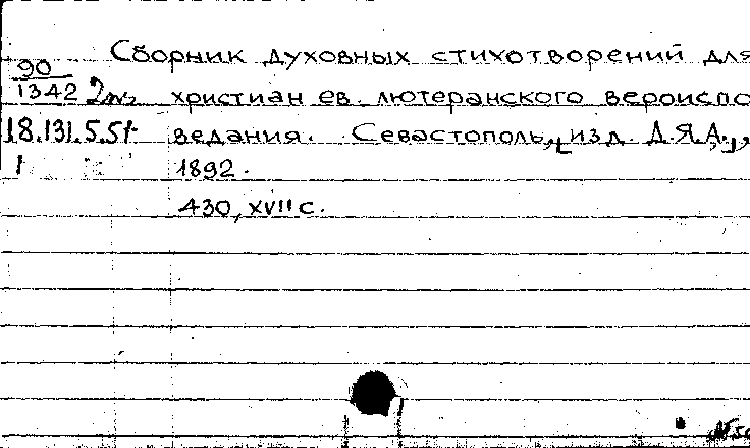 Сборник духовных стихотворений для
90
1342 христиан ев. лютеранского вероиспо
18.131.5.51 ведания. Севастополь, [изд. Д.Я.А.],
1 1892.
430, XVII с.